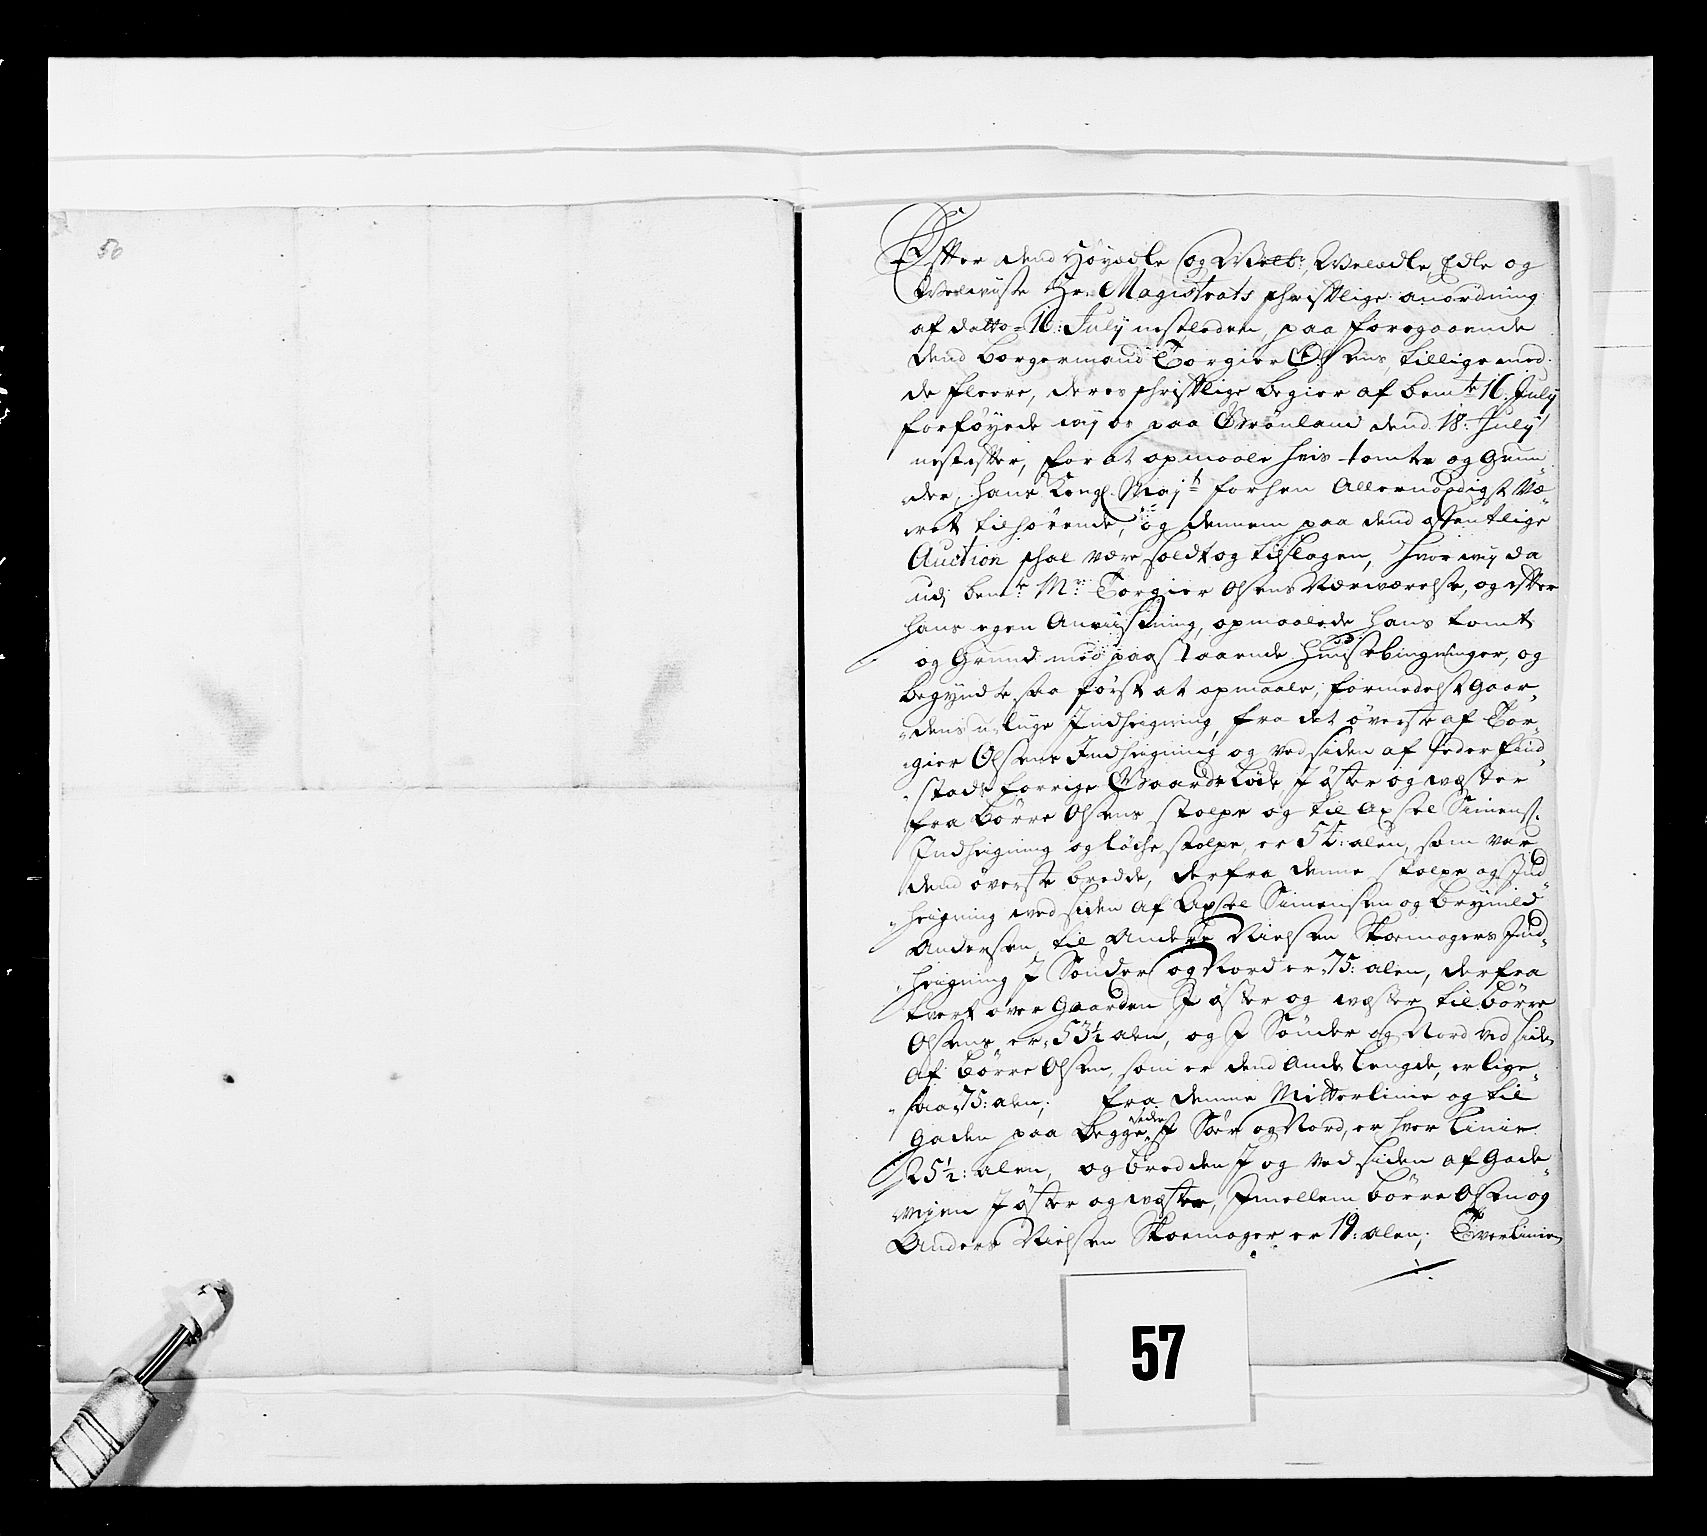 56
Efter dend Høyædle og Velb:, Velædle, Edle og
Velviise Hr: Magistrats schriftlige anordning
af datto 16: July nestleden, paa foregaaende
dend borgermand Torgier Olsens, tillige med
de fleere, deres schriftlige begier af bemte 16. July
forføyede wij os paa Grønland dend 18: July
nestefter, for at opmaale hvis tomter og Grun„
der, hans Kongl. Mayts forhen Allernaadigst væ„
ret tilhørende, og dennem paa dend offentlige
Auction schal være soldt og tilslagen, hvor wij da
udj bemte Mr. Torgier Olsens Nærværelse, og efter
hans egen Anviisning, opmaalede hans tomt
og Grund med paastaaende Huusebingninger, og
begyndte saa først at opmaale, formedelst Gaar„
„dens u-liige Indheigning, fra det øverste af Tor„
gier Olsens Indheigning og ved siden af Peder
stads forrige Gaards Løde J øster og wester
fra Børre Olsens stolpe og til Axsel Simens:
Indheigning og løche stolpe, er 51: alen, som var
dend øverste bredde, derfra denne stolpe og Ind„
heigning ved siden af Axsel Simensen og Brynild
Andersen, til Anders Nielsen Skomagers Ind„
heigning J Sønder og Nord er 75: alen, derfra
tvert over Gaarden J øster og wester til Børre
Olsens er 53½ alen, og J Sønder og Nord ved siden
af Børre Olsen, som er dend anden lengde, er lige„
„saa 75: alen; fra denne Mitterlinie og til
Gaden paa begge sider J Sør og Nord, er hver Linie
25½: alen, og bredden J og ved siden af Gade„
vejen J øster og wester, Jmellem Børre Olsen og
Anders Nielsen Skomager er 19: alen; Tverlinien
57